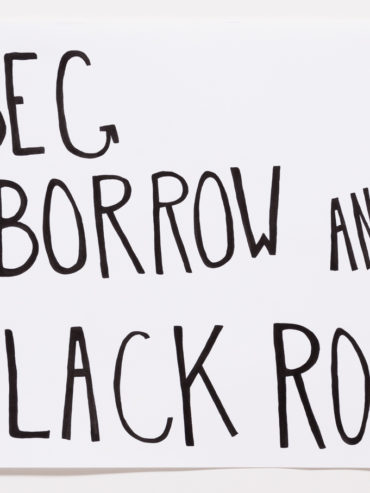 BEG
BORROW AN
LACK RO